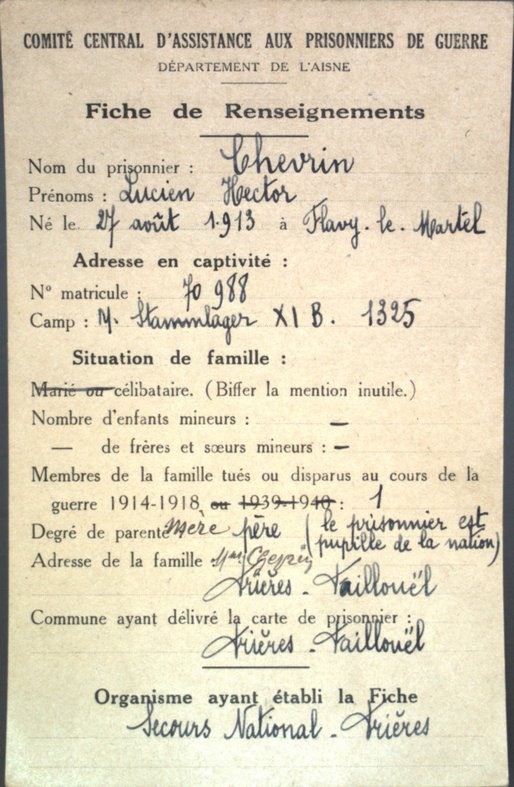 COMITÉ CENTRAL D'ASSISTANCE AUX PRISONNIERS DE GUERRE
DÉPARTEMENT DE L'AISNE
Fiche de Renseignements
Nom du prisonnier : Chevrin
Prénoms : Lucien Hector
Né le 27 août 1.913 à Flavy-le-Martel
Adresse en captivité :
N° matricule : 70 988
Camp : M. Stammlager XI B. 1325
Situation de famille :
Marié ou célibataire. (Biffer la mention inutile.)
Nombre d'enfants mineurs : —
— de frères et sœurs mineurs : —
Membres de la famille tués ou disparus au cours de la
guerre 1914-1918 ou 1939-1940 : 1
Degré de parenté mère père (le prisonnier est
pupille de la nation)
Adresse de la famille Mme
Frières-Faillouël
Commune ayant délivré la carte de prisonnier :
Frières-Faillouël
Organisme ayant établi la Fiche
Secours National-Frières